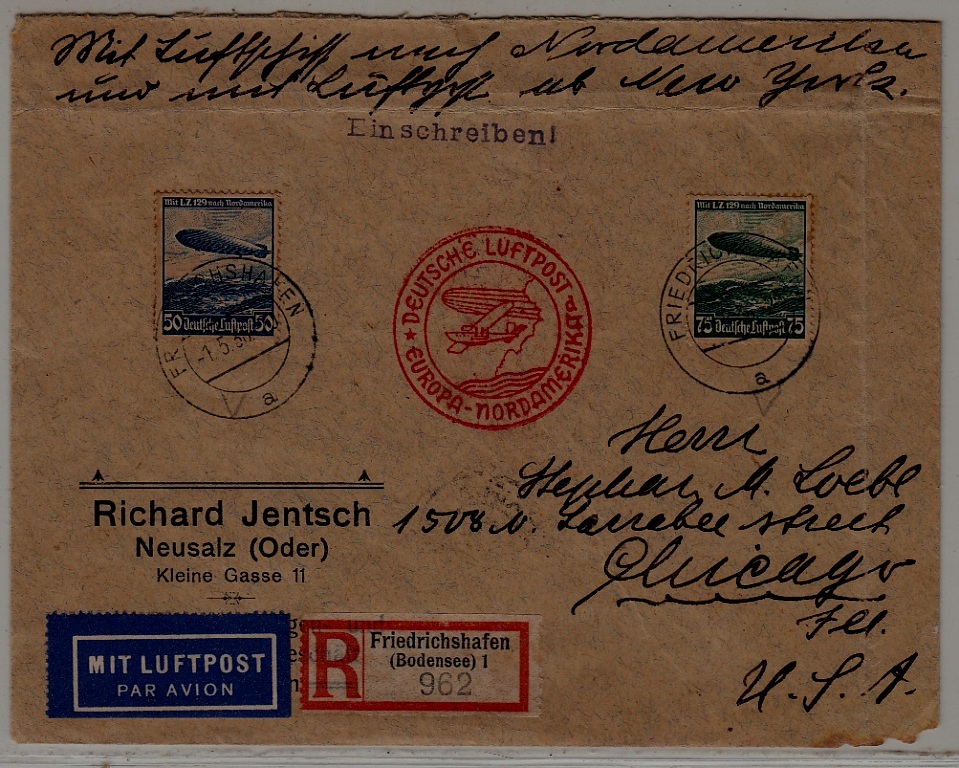 Mit Luftschiff nach Nordamerika
und mit Luftpost ab New York.
Einschreiben!
Mit LZ 129 nach Nordamerika
50 Deutsche Luftpost 50
FR HSHAFEN
-1.5.36
a
DEUTSCHE LUFTPOST
EUROPA-NORDAMERIKA
Mit LZ 129 nach Nordamerika
75 Deutsche Luftpost 75
FRIEDRICH
a
Herrn
Stephan A. Loebl
1508 N. Larrabee street
Chicago
Ill.
U.S.A.
Richard Jentsch
Neusalz (Oder)
Kleine Gasse 11
MIT LUFTPOST
PAR AVION
R
Friedrichshafen
(Bodensee) 1
962